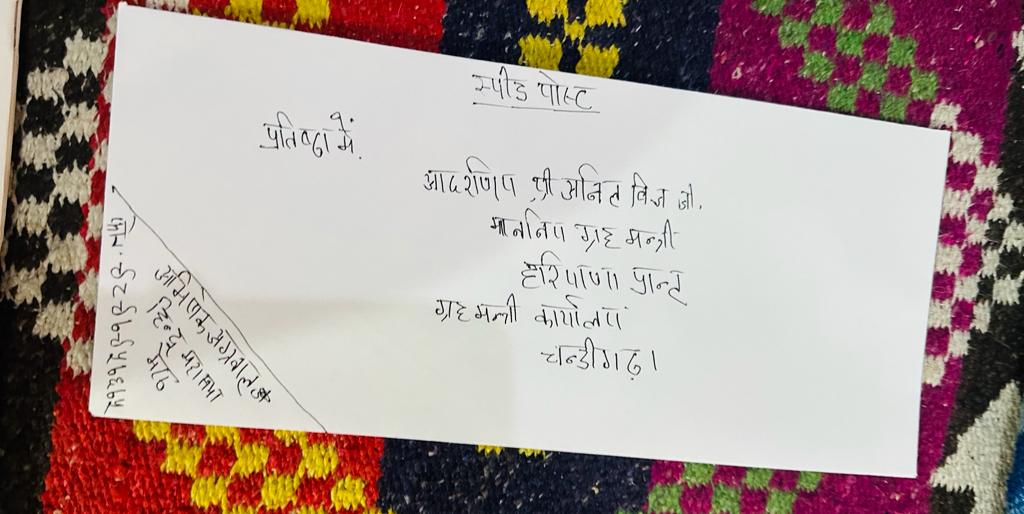 स्पीड पोस्ट
प्रतिष्ठा में.
आदरणिय श्री अनिल विज जी.
माननिय ग्रह मन्त्री
हरियाणा प्रान्त
ग्रहमन्त्री कार्यालय
चन्डीगढ़।
अभिषेक अग्रवाल
हिन्दू महासभा